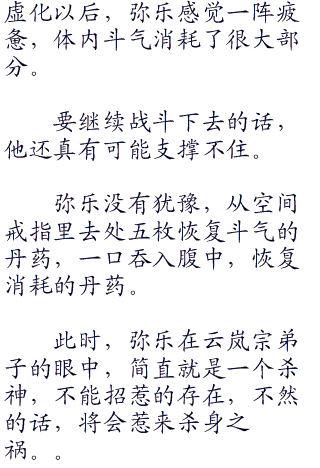 虚化以后，弥乐感觉一阵疲
惫，体内斗气消耗了很大部
分。
要继续战斗下去的话，
他还真有可能支撑不住。
弥乐没有犹豫，从空间
戒指里去处五枚恢复斗气的
丹药，一口吞入腹中，恢复
消耗的丹药。
此时，弥乐在云岚宗弟
子的眼中，简直就是一个杀
神，不能招惹的存在，不然
的话，将会惹来杀身之
祸。。